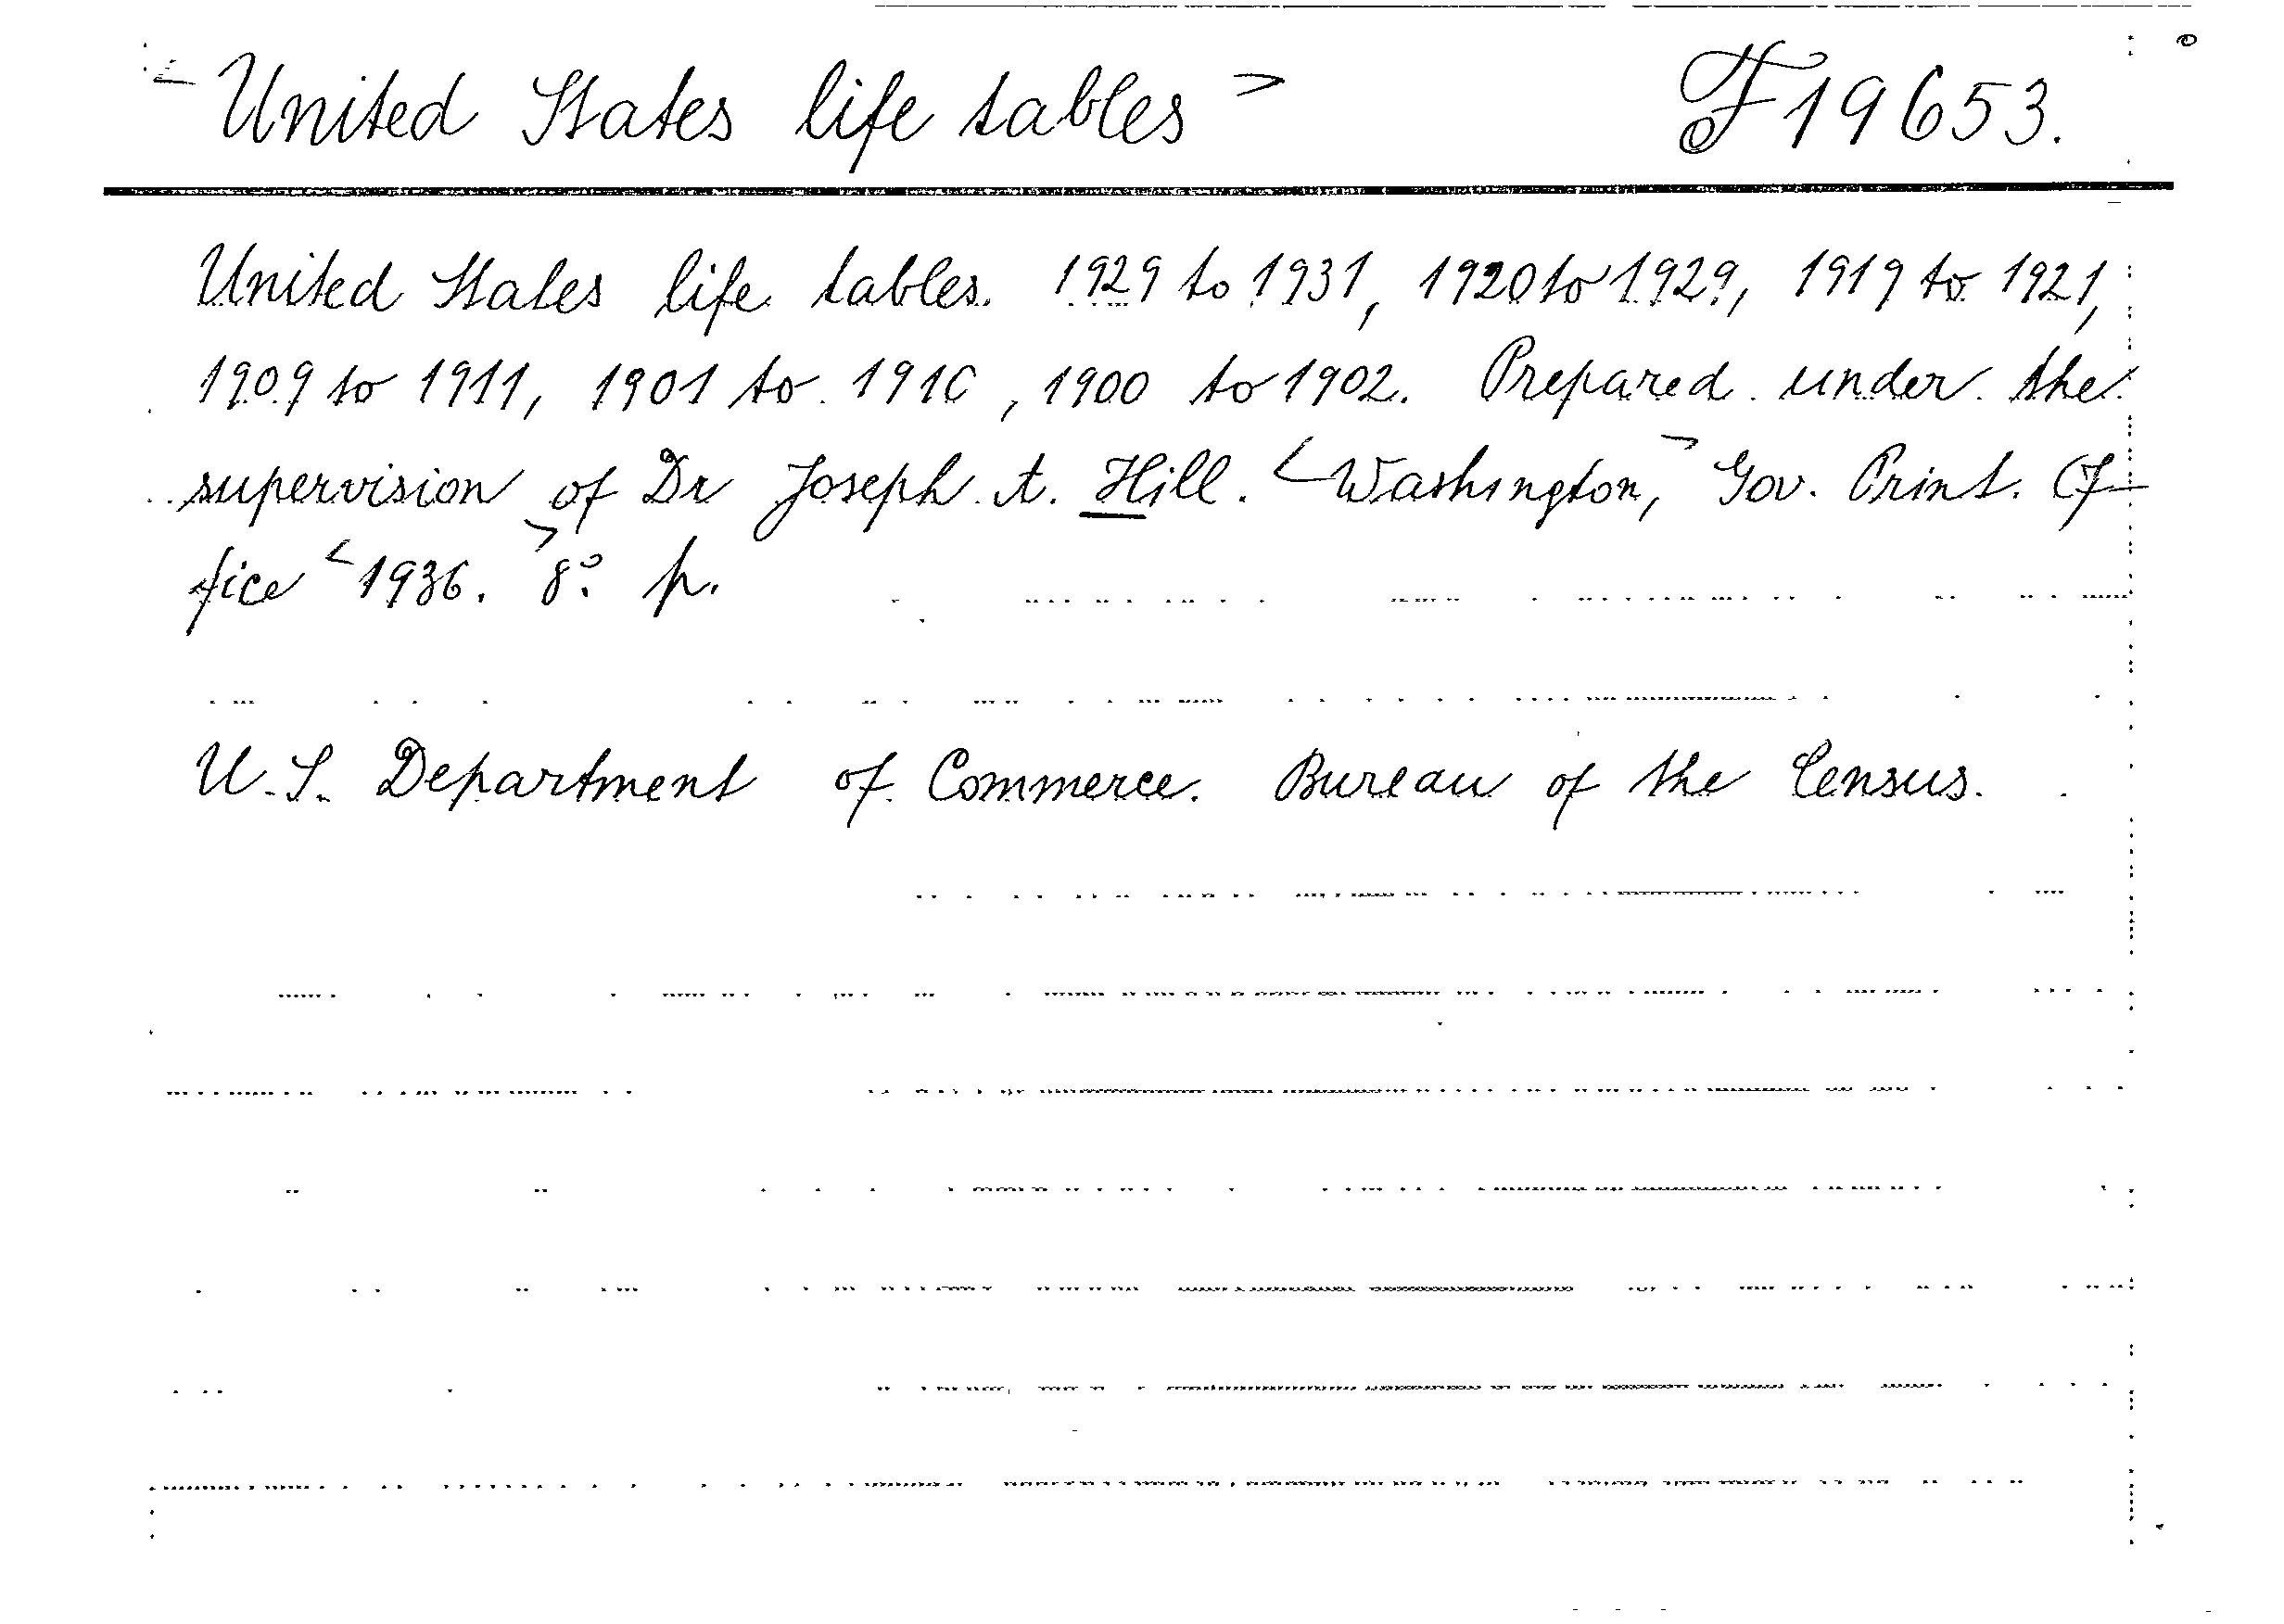 < United States life tables > F 19653.
United States life tables. 1929 to 1931, 1920 to 1929, 1919 to 1921,
1909 to 1911, 1901 to 1910, 1900 to 1902. Prepared under the
supervision of Dr Joseph A. Hill. <Washington,> Gov. Print. Of-
fice <1936.> 8° p.
U.S. Department of Commerce. Bureau of the Census.